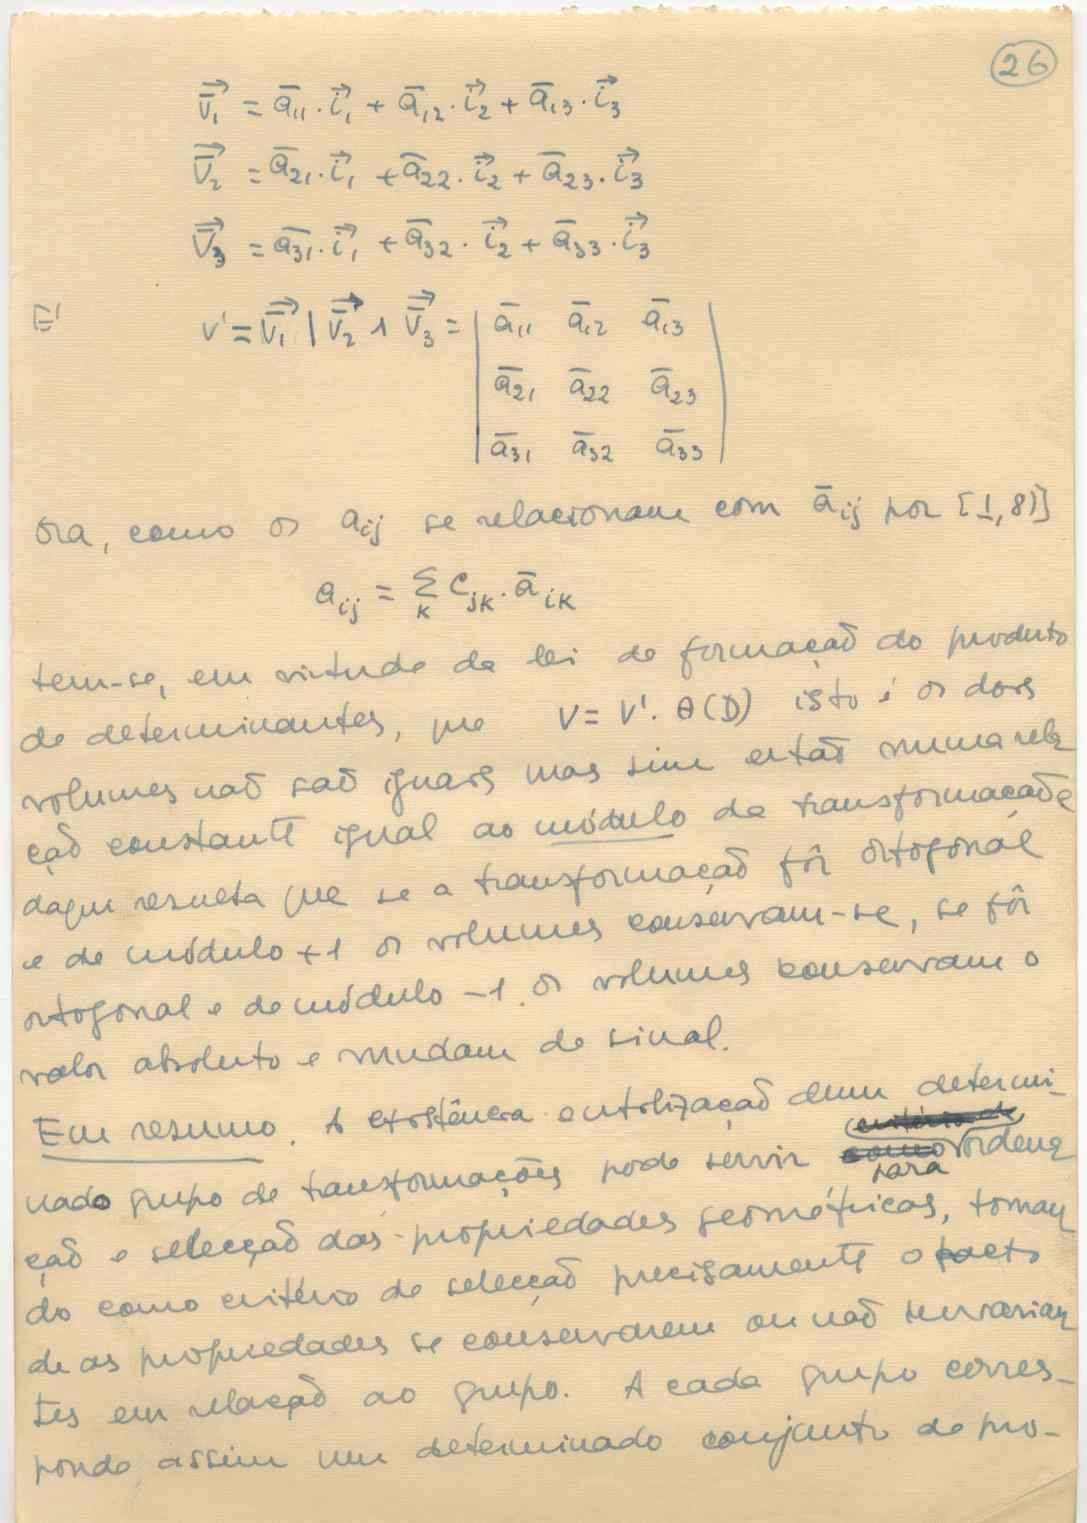 26
v̄⃗₁ = ā₁₁·i⃗₁ + ā₁₂·i⃗₂ + ā₁₃·i⃗₃
v̄⃗₂ = ā₂₁·i⃗₁ + ā₂₂·i⃗₂ + ā₂₃·i⃗₃
v̄⃗₃ = ā₃₁·i⃗₁ + ā₃₂·i⃗₂ + ā₃₃·i⃗₃
E' v' = v̄⃗₁ | v̄⃗₂ ∧ v̄⃗₃ = | ā₁₁ ā₁₂ ā₁₃ |
| ā₂₁ ā₂₂ ā₂₃ |
| ā₃₁ ā₃₂ ā₃₃ |
Ora, como os aij se relacionam com āij por [1,8)]
aij = Σk cjk·āik
tem-se, em virtude da lei de formação do produto
de determinantes, que V = V'·θ(D) isto é os dois
volumes não são iguais mas sim estão numa rela
ção constante igual ao módulo da transformação e
daqui resulta que se a transformação fôr ortogonal
e de módulo +1 os volumes conservam-se, se fôr
ortogonal e de módulo -1 os volumes conservam o
valor absoluto e mudam de sinal.
Em resumo. A existência e utilização dum determi-
nado grupo de transformações pode servir para ordena
ção e selecção das propriedades geométricas, toman
do como critério de selecção precisamente o facto
de as propriedades se conservarem ou não invarian
tes em relação ao grupo. A cada grupo corres-
ponde assim um determinado conjunto de pro-